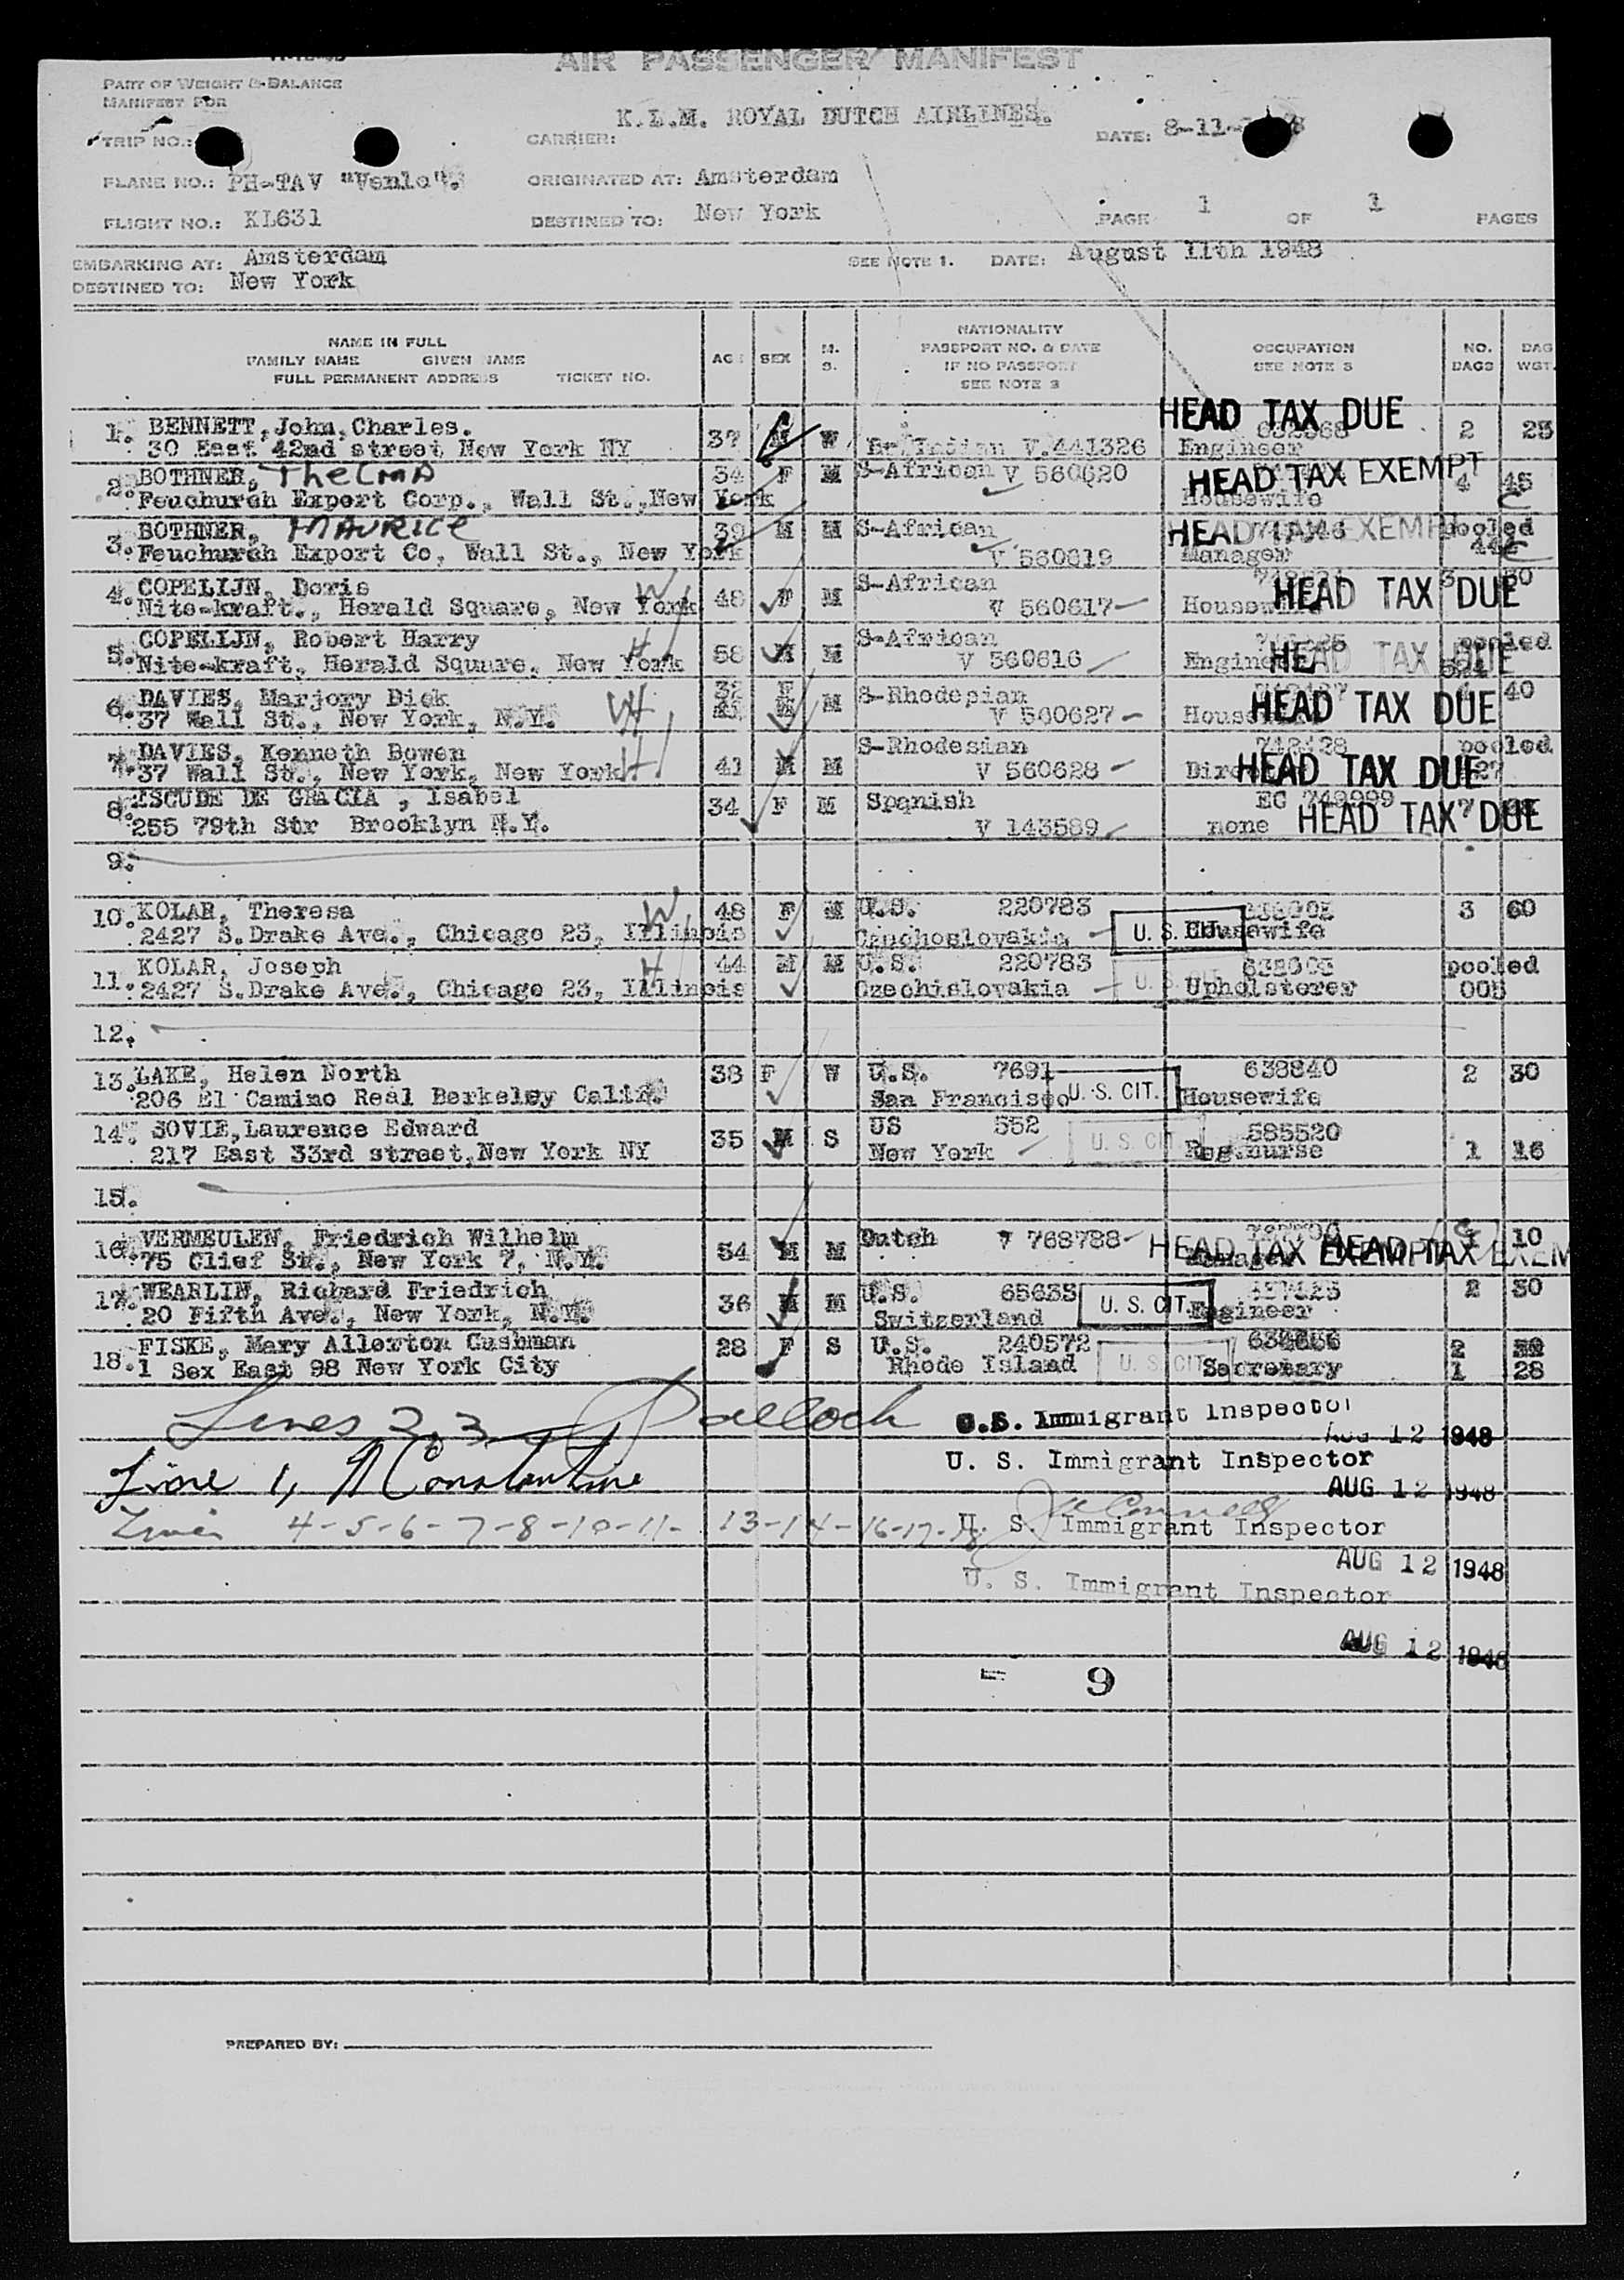 AIR PASSENGER MANIFEST
PART OF WEIGHT & BALANCE
MANIFEST FOR
TRIP NO.:
CARRIER: K.L.M. ROYAL DUTCH AIRLINES.
DATE: 8-11-
PLANE NO.: PH-TAV "Venlo".
ORIGINATED AT: Amsterdam
FLIGHT NO.: KL631
DESTINED TO: New York
PAGE 1 OF 1 PAGES
EMBARKING AT: Amsterdam
SEE NOTE 1. DATE: August 11th 1948
DESTINED TO: New York
NAME IN FULL
FAMILY NAME GIVEN NAME
FULL PERMANENT ADDRESS TICKET NO.
AGE SEX M. S.
NATIONALITY
PASSPORT NO. & DATE
IF NO PASSPORT
SEE NOTE 2
OCCUPATION
SEE NOTE 3
NO. BAGS
BAG WGT.
1. BENNETT, John, Charles. 37 M W HEAD TAX DUE 2 25
30 East 42nd street New York NY V.441326 Engineer
2. BOTHNER, THELMA 34 F M S-African V 560620 HEAD TAX EXEMPT 4 45
Feuchurch Export Corp., Wall St., New York Housewife
3. BOTHNER, MAURICE 39 M M S-African HEAD TAX EXEMPT pooled
Feuchurch Export Co, Wall St., New York V 560619 Manager
4. COPELIJN, Doris W 48 F M S-African HEAD TAX DUE
Nite-kraft., Herald Square, New York V 560617 Housewife
5. COPELIJN, Robert Harry H 58 M M S-African pooled
Nite-kraft, Herald Square, New York V 560616 Engineer HEAD TAX DUE
6. DAVIES, Marjory Dick 32 F M S-Rhodesian 40
37 Wall St., New York, N.Y. W V 560627 HEAD TAX DUE
7. DAVIES, Kenneth Bowen 41 M M S-Rhodesian pooled
37 Wall St., New York, New York H V 560628 HEAD TAX DUE
8. ESCUDE DE GRACIA , Isabel 34 F M Spanish
255 79th Str Brooklyn N.Y. V 143589 none HEAD TAX DUE
9.
10. KOLAR, Theresa W 48 F M U.S. 220783 3 60
2427 S.Drake Ave., Chicago 23, Illinois Czechoslovakia U. S. CIT. Housewife
11. KOLAR, Joseph H 44 M M U.S. 220783 pooled
2427 S.Drake Ave., Chicago 23, Illinois Czechislovakia U. S. CIT. Upholsterer
12.
13. LAKE, Helen North 38 F W U.S. 7691 638840 2 30
206 El Camino Real Berkeley Calif. San Francisco U. S. CIT. Housewife
14. JOVIE, Laurence Edward 35 M S US 552 585520
217 East 33rd street, New York NY New York U. S. CIT. Reg.nurse 1 16
15.
16. VERMEULEN, Friedrich Wilhelm 54 M M Dutch V 768788 10
75 Clief St., New York 7, N.Y. HEAD TAX EXEMPT HEAD TAX EXEM
17. WEARLIN, Richard Friedrich 36 M M U.S. 65635 2 30
20 Fifth Ave., New York, N.Y. Switzerland U. S. CIT. Engineer
18. FISKE, Mary Allerton Cushman 28 F S U.S. 240572 2
1 Sex East 98 New York City Rhode Island U. S. CIT. Secretary 1 28
Lines 2, 3 U.S. Immigrant Inspector
AUG 12 1948
Line 1, N Constantine U. S. Immigrant Inspector
AUG 12 1948
Lines 4-5-6-7-8-10-11-13-14-16-17-18 U. S. Immigrant Inspector
AUG 12 1948
U. S. Immigrant Inspector
AUG 12 1948
9
PREPARED BY: